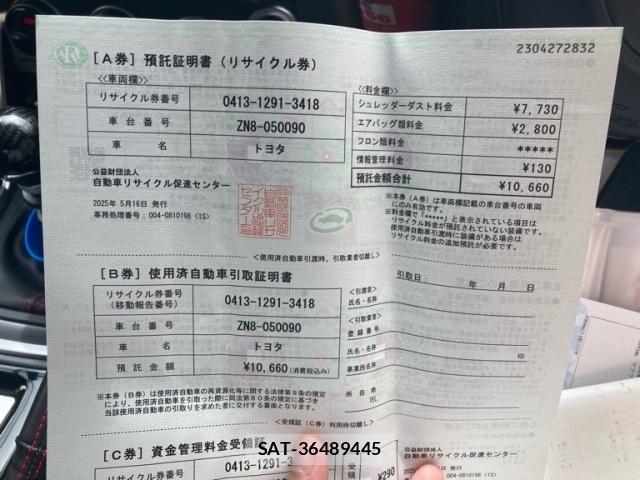 2304272832
[A券] 預託証明書 (リサイクル券)
≪車両欄≫
リサイクル券番号 0413-1291-3418
車台番号 ZN8-050090
車名 トヨタ
≪料金欄≫
シュレッダーダスト料金 ¥7,730
エアバッグ類料金 ¥2,800
フロン類料金 *****
情報管理料金 ¥130
預託金額合計 ¥10,660
公益財団法人
自動車リサイクル促進センター
2025年 5月16日 発行
事務処理番号: 004-0810198 (1S)
※本券(A券)は車両欄記載の車台番号の車両
にのみ有効です。
※料金欄で「*****」と表示されている項目は
リサイクル料金が預託されていない装備です。
使用済自動車引渡時に装備がある場合は
リサイクル料金の追加預託が必要です。
<使用済自動車引渡時、引取業者切離し>
[B券] 使用済自動車引取証明書
引取日: 年 月 日
リサイクル券番号
(移動報告番号) 0413-1291-3418
車台番号 ZN8-050090
車名 トヨタ
預託金額 ¥10,660(消費税込み)
<引渡者>
氏名・名称
<引取業者>
登録番号
氏名・名称 印
事業所名称
所在地
TEL
※本券(B券)は使用済自動車の再資源化等に関する法律第9条の規定
により、使用済自動車を引取った際に同法第80条の規定に基づき
当該使用済自動車の引取りを求めた者に交付する書面となります。
<受領証(C券)利用時切離し>
[C券] 資金管理料金受領証
リサイクル券番号 0413-1291-3
¥290
公益財団法人
自動車リサイクル促進センター
004-0810198 (1S)
SAT-36489445